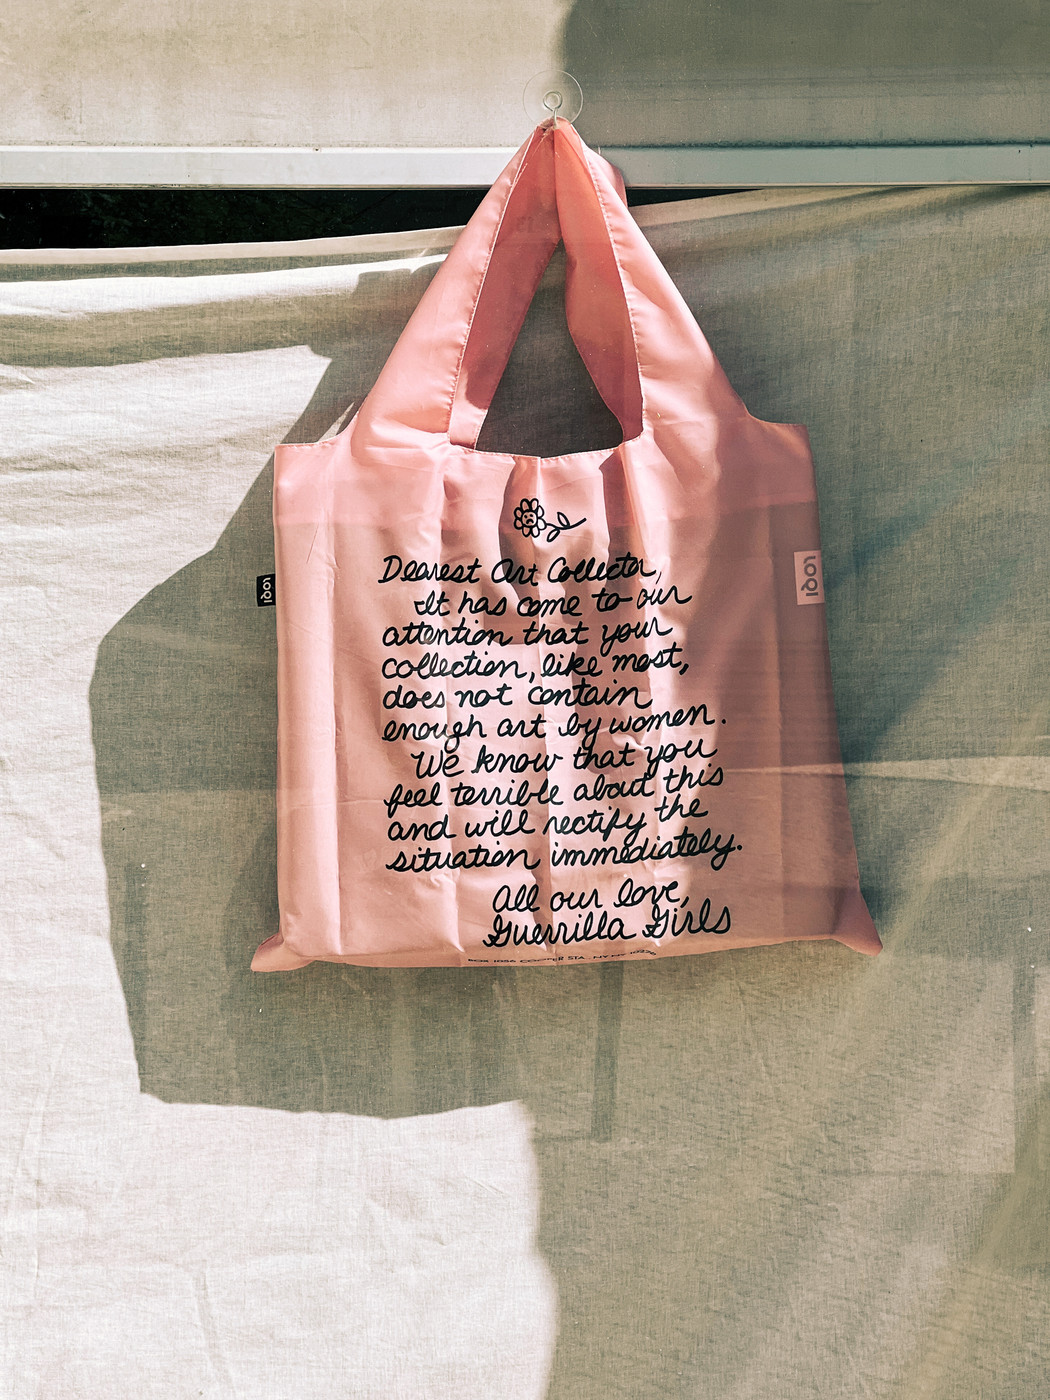 Dearest Art Collector,
It has come to our
attention that your
collection, like most,
does not contain
enough art by women.
We know that you
feel terrible about this
and will rectify the
situation immediately.
All our love,
Guerrilla Girls
BOX 1056 COOPER STA. NY NY 10276
LOQI
LOQI